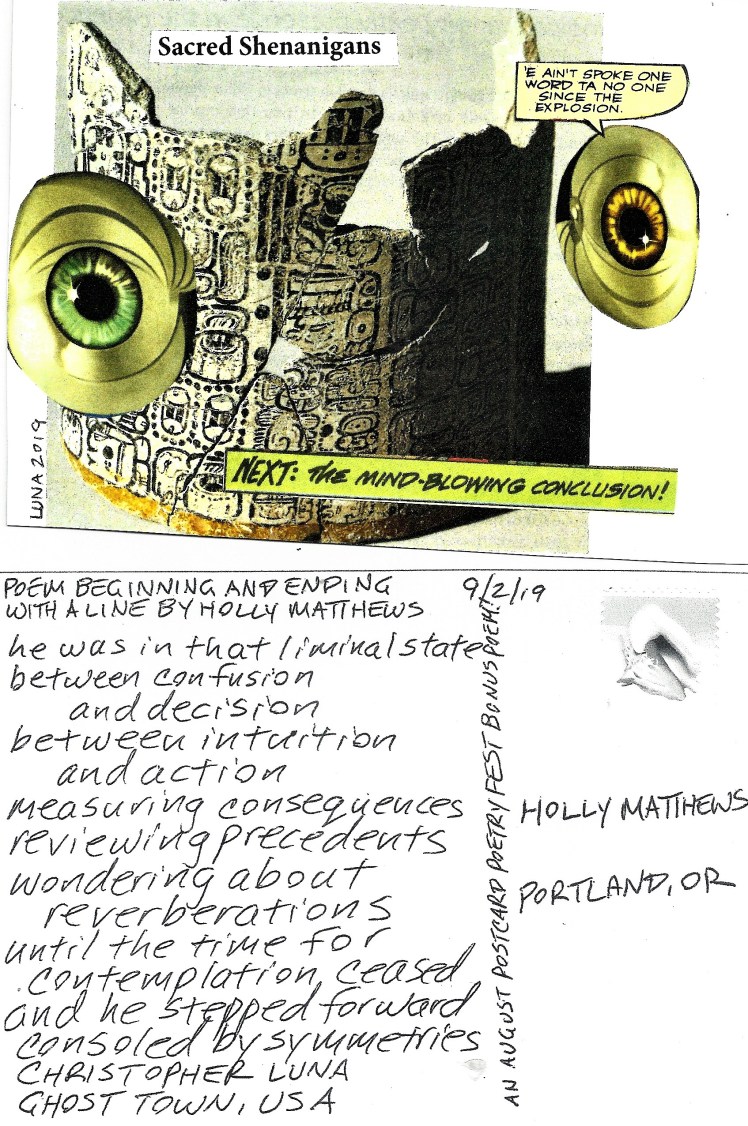 Sacred Shenanigans
'E AIN'T SPOKE ONE
WORD TA NO ONE
SINCE THE
EXPLOSION.
LUNA 2019
NEXT: THE MIND-BLOWING CONCLUSION!
POEM BEGINNING AND ENDING
WITH A LINE BY HOLLY MATTHEWS
he was in that liminal state
between confusion
and decision
between intuition
and action
measuring consequences
reviewing precedents
wondering about
reverberations
until the time for
contemplation ceased
and he stepped forward
consoled by symmetries
CHRISTOPHER LUNA
GHOST TOWN, USA
9/2/19
AN AUGUST POSTCARD POETRY FEST BONUS POEM!
HOLLY MATTHEWS
PORTLAND, OR